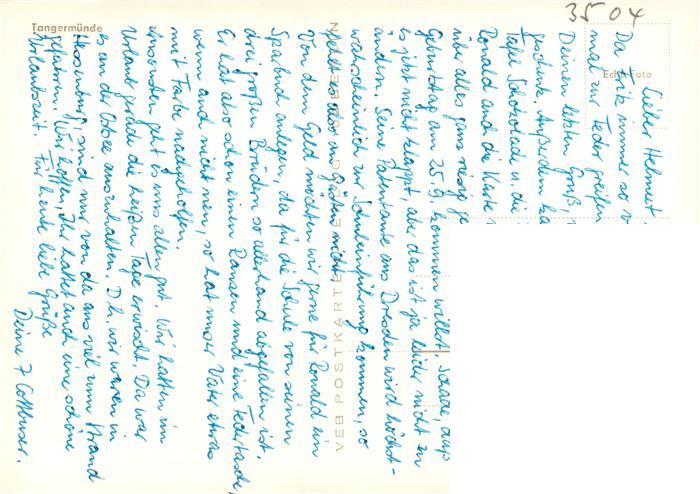 Tangermünde
3504
Echt Foto
VEB POSTKARTEN
Lieber Helmut,
Da Fritz immer so v
mal zur Feder greifen
Deinen letzten Gruß
geschenk. Außerdem ka
Tafel Schokolade u. die
Ronald und die Karte
über alles ganz riesig ge
Geburtstag am 25.9. kommen willst. Schade, daß
es jetzt nicht klappt, aber das ist ja leider nicht zu
ändern. Seine Patentante aus Dresden wird höchst-
wahrscheinlich zur Schuleinführung kommen, so
fehlt es also an Gästen nicht.
Von dem Geld möchten wir gerne für Ronald ein
Sparbuch anlegen, da für die Schule von seinen
drei großen Brüdern so allerhand abgefallen ist.
Er hat also schon einen Ranzen und eine Federtasche,
wenn auch nicht neu, so hat unser Vater etwas
mit Farbe nachgeholfen.
Ansonsten geht es uns allen gut. Wir hatten im
Urlaub gerade die heißen Tage erwischt. Da war
es an der Ostsee auszuhalten. D.h. wir waren in
sind wir von da aus viel zum Strand
gefahren. Wir hoffen, Ihr hattet auch eine schöne
Urlaubszeit. Für heute liebe Grüße
Deine 7 Cottbuser.